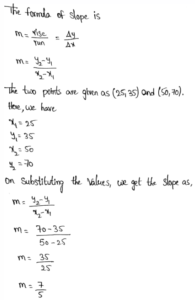 The formula of slope is
m = rise/run = Δy/Δx
m = y₂-y₁/x₂-x₁
The two points are given as (25,35) and (50,70).
Here, we have
x₁ = 25
y₁ = 35
x₂ = 50
y₂ = 70
On substituting the values, we get the slope as,
m = y₂-y₁/x₂-x₁
m = 70-35/50-25
m = 35/25
m = 7/5